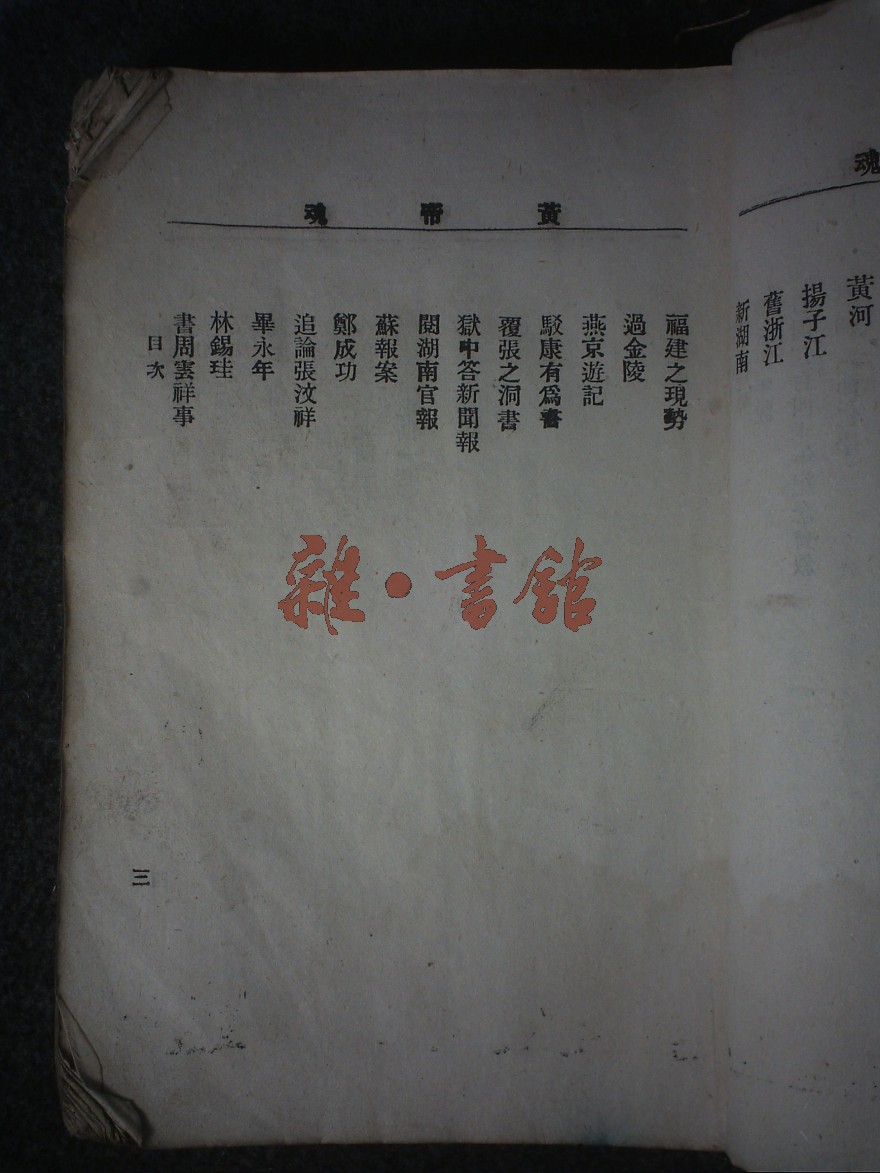 魂
黃河
揚子江
舊浙江
新湖南
黃帝魂
福建之現勢
過金陵
燕京遊記
駁康有爲書
覆張之洞書
獄中答新聞報
閱湖南官報
蘇報案
鄭成功
追論張汶祥
畢永年
林錫珪
書周雲祥事
目次
三
雜·書館